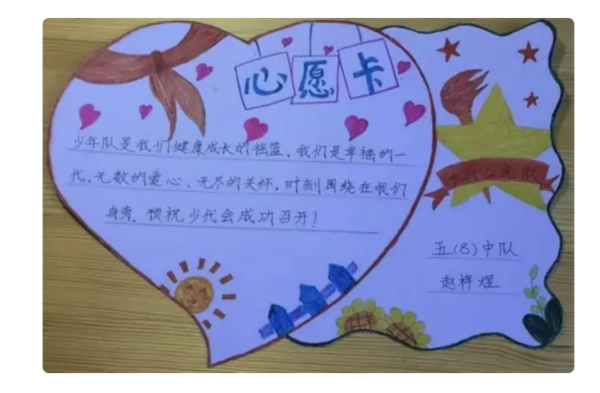 心愿卡
少年队是我们健康成长的摇篮，我们是幸福的一
代，无数的爱心、无尽的关怀，时刻围绕在我们
身旁，预祝少代会成功召开！
中国少先队
五（8）中队
赵梓煜